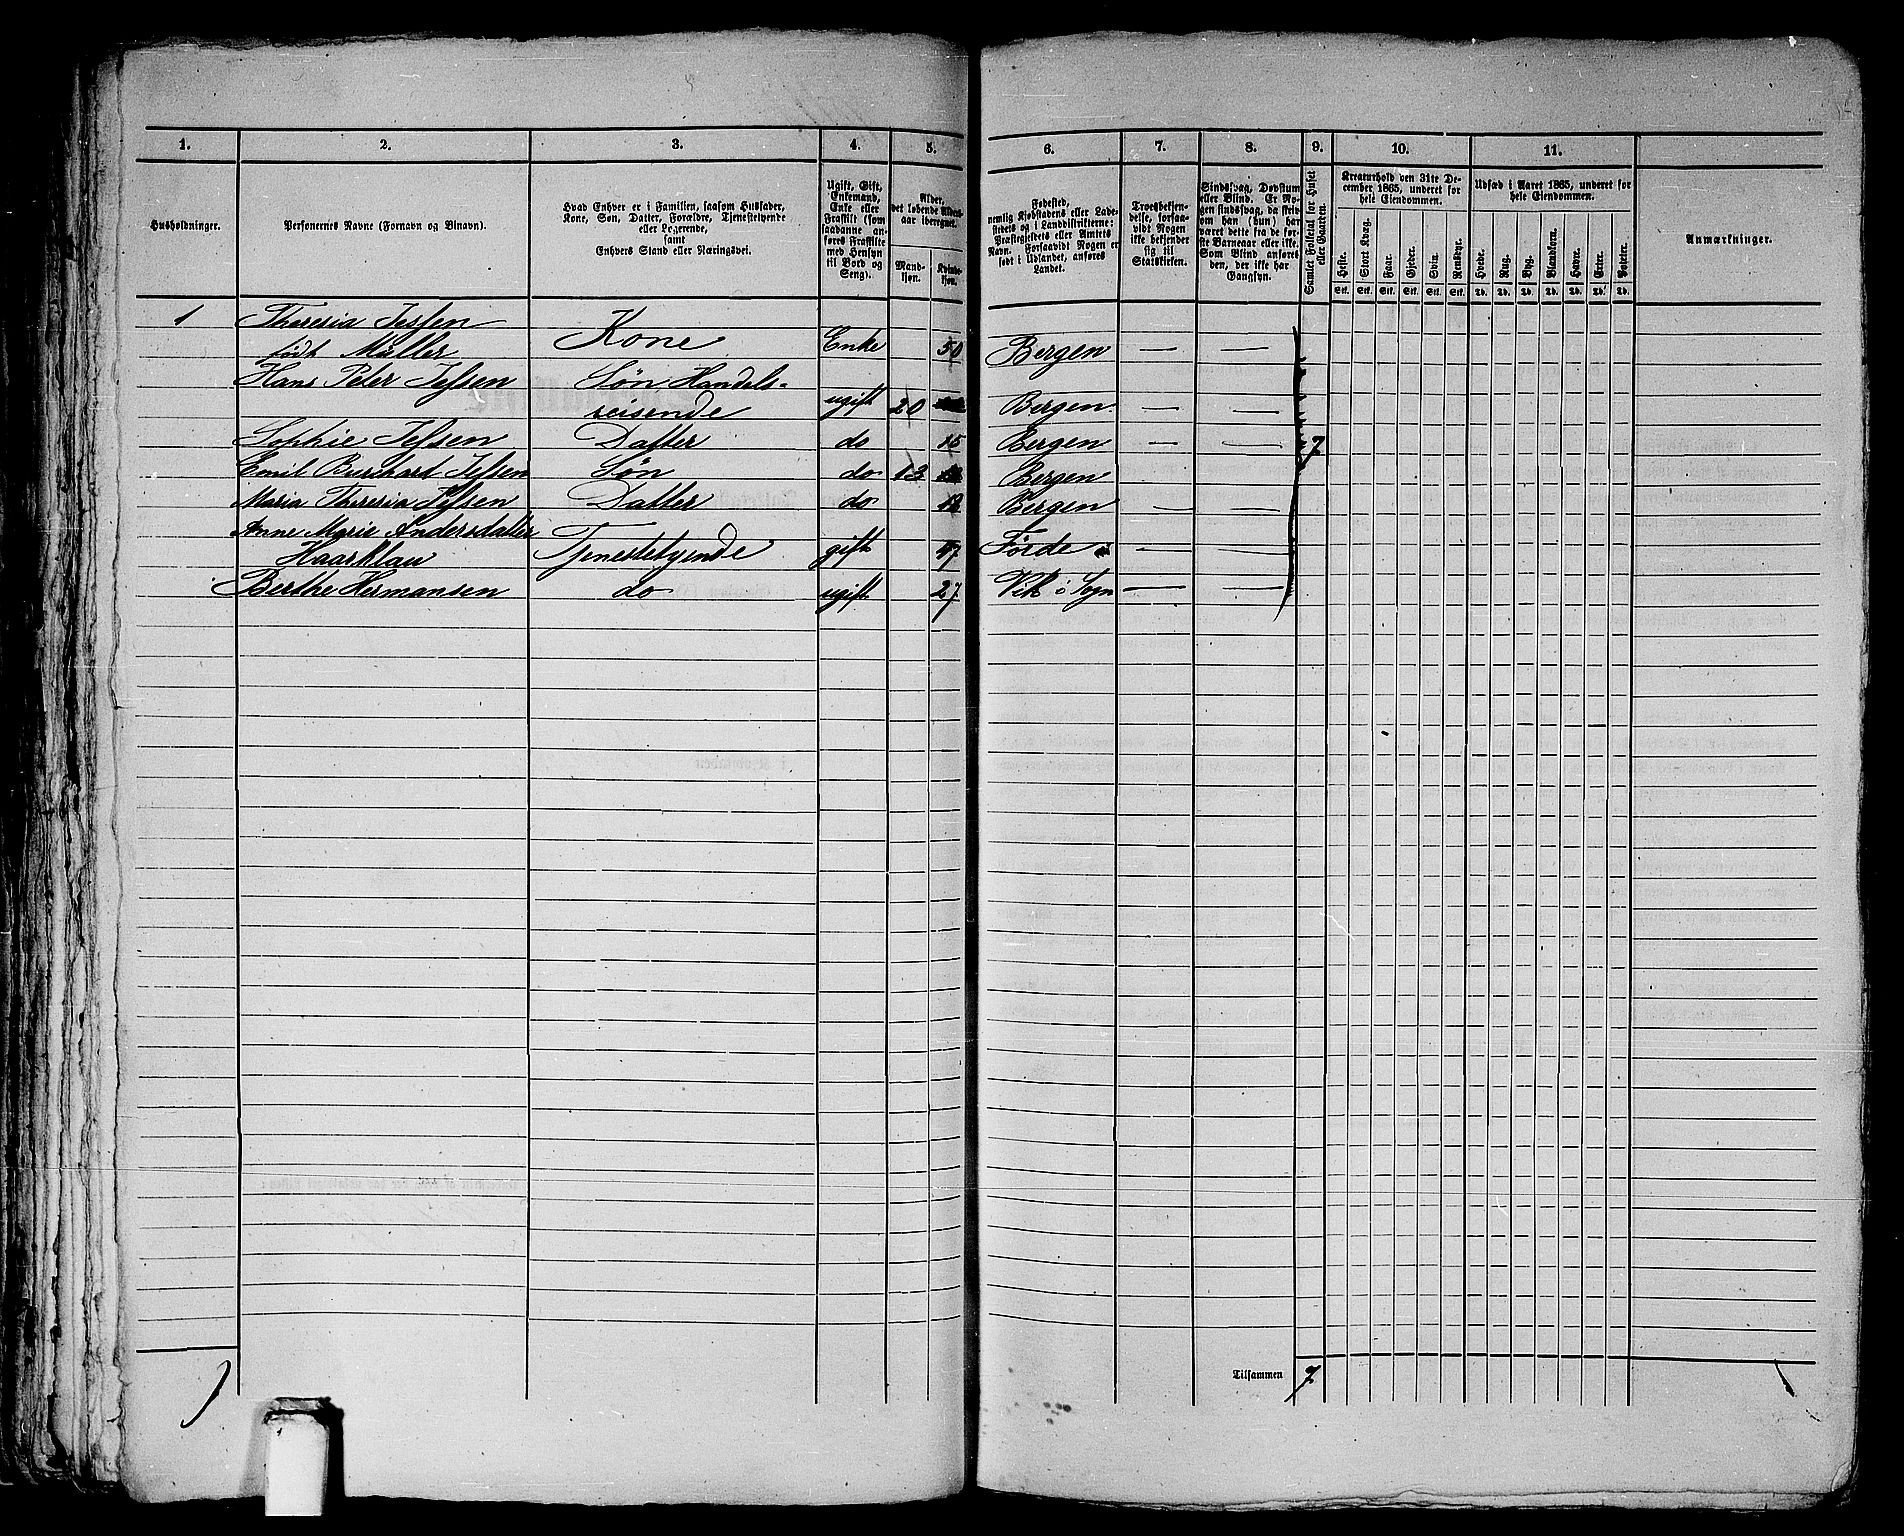 1. 2. 3. 4. 5. 6. 7. 8. 9. 10. 11.
Husholdninger.
Personernes Navne (Fornavn og Binavn).
Hvad Enhver er i Familien, saasom Husfader,
Kone, Søn, Datter, Forældre, Tjenestetyende
eller Logerende,
samt
Enhvers Stand eller Næringsvei.
Ugift, Gift,
Enkemand,
Enke eller
Fraskilt (som
saadanne an-
føres Fraskilte
med Hensyn
til Bord og
Seng).
Alder,
det løbende Alders-
aar iberegnet.
Mand-
kjøn.
Kvinde-
kjøn.
Fødested,
nemlig Kjøbstadens eller Lade-
stedets og i Landdistrikterne:
Præstegjeldets eller Amtets
Navn. Forsaavidt Nogen er
født i Udlandet, anføres
Landet.
Troesbekjen-
delse, forsaa-
vidt Nogen
ikke bekjender
sig til
Statskirken.
Sindssvag, Døvstum
eller Blind. Er No-
gen sindssvag, da skriv
om han (hun) har
været dette fra de før-
ste Barneaar eller ikke.
Som Blind anføres
den, der ikke har
Gangsyn.
Samlet Folketal for Huset
eller Gaarden.
Kreaturhold den 31te De-
cember 1865, underet for
hele Eiendommen.
Heste. Stort Kvæg. Faar. Gjeder. Svin. Rensdyr.
Stk. Stk. Stk. Stk. Stk. Stk.
Udsæd i Aaret 1865, underet for
hele Eiendommen.
Hvede. Rug. Byg. Blandkorn. Havre. Erter. Poteter.
Td. Td. Td. Td. Td. Td. Td.
Anmærkninger.
1 Theresia Jessen
født Müller Kone Enke 50 Bergen — —
Hans Peter Jessen Søn Handels-
reisende ugift 20 Bergen. — —
Sophie Jessen Datter do 15 Bergen — — 7
Emil Burchard Jessen Søn do 13 Bergen
Maria Theresia Jessen Datter do Bergen
Anne Marie Andersdatter
Haarklau Tjenestetyende gift 47 Førde — —
Berthe Hermansen do ugift 27 Vik i Sogn — —
Tilsammen 7